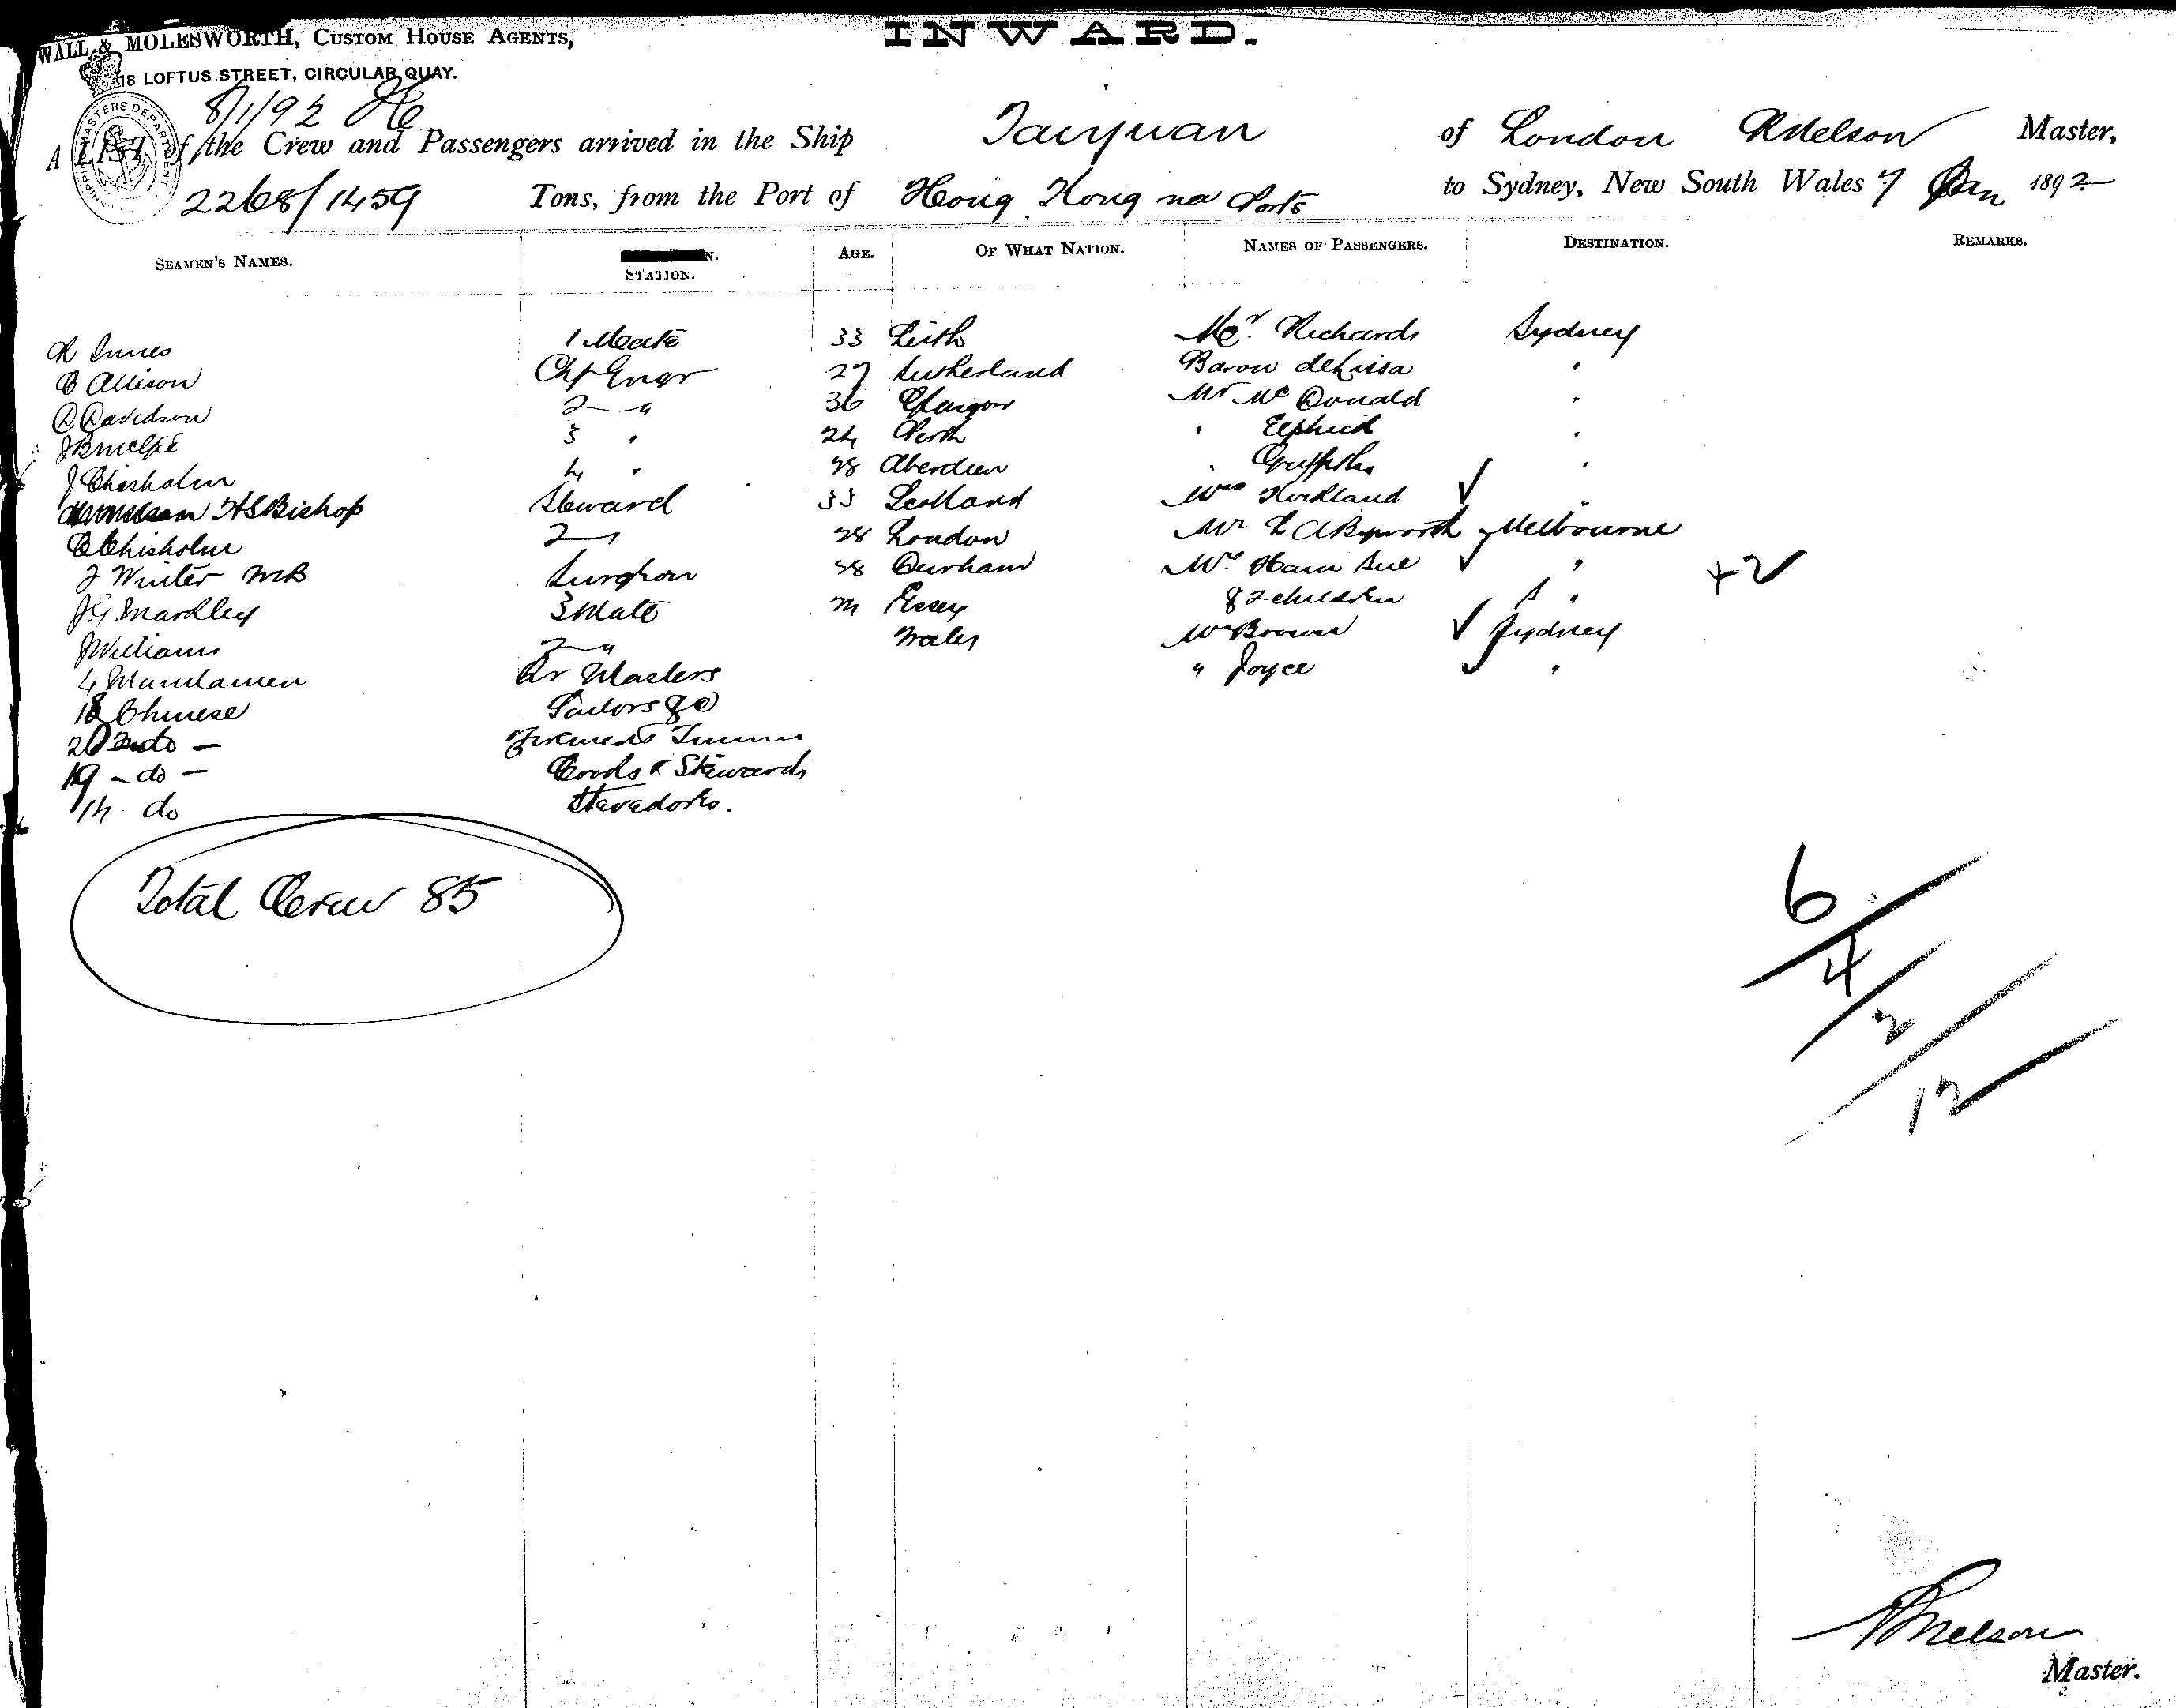 WALL & MOLESWORTH, CUSTOM HOUSE AGENTS,
INWARD.
18 LOFTUS STREET, CIRCULAR QUAY.
8/1/92
A LIST of the Crew and Passengers arrived in the Ship Taiyuan of London R Nelson Master,
2268/1459 Tons, from the Port of Hong Kong via Ports to Sydney, New South Wales 7 Jan 1892
SEAMEN'S NAMES. STATION. AGE. OF WHAT NATION. NAMES OF PASSENGERS. DESTINATION. REMARKS.
R Innes 1 Mate 33 Leith Mr. Richards Sydney
Allison Chf Engr 27 Sutherland Baron deLissa "
D Davidson 2 " 36 Glasgow Mr McDonald "
3 " 24 Perth " Elphick "
J Chisholm 4 " 28 Aberdeen " Griffiths "
H S Bishop Steward 33 Scotland Mrs Kirkland "
Chisholm 2 " 28 London Mr Melbourne
J Winter MB Surgeon 28 Durham Mrs Ham Sue " +2
J.G. Mardley 3 Mate Essex & 2 children "
J Williams 2 " Wales Mr Brown Sydney
4 Manilamen Qr Masters " Joyce "
18 Chinese Sailors &c
20 do - Firemens
19 - do - Cooks & Stewards
14 do Stevedores.
Total Crew 85
6
4
2
12
R Nelson
Master.